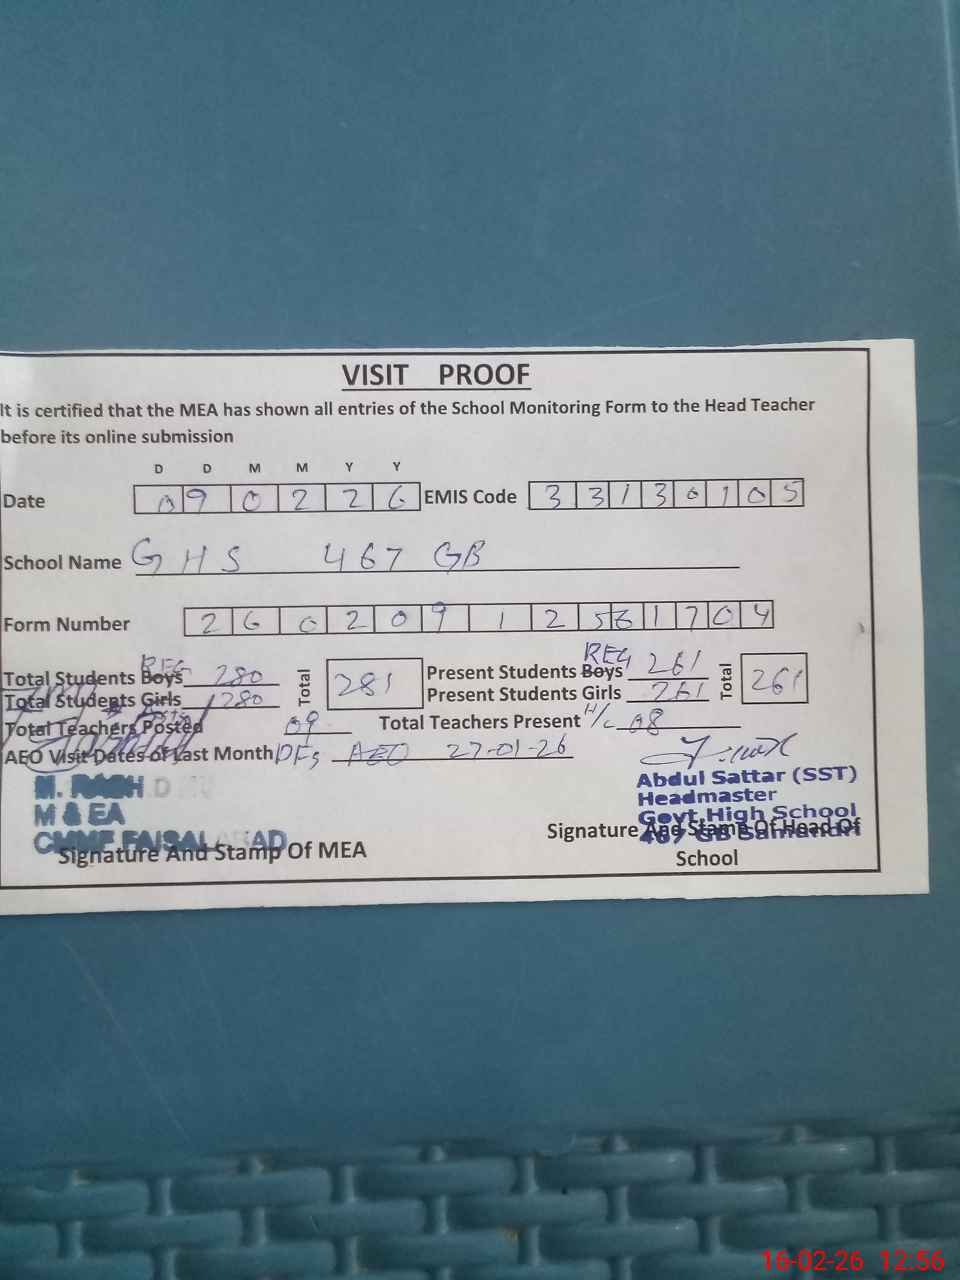 VISIT PROOF
It is certified that the MEA has shown all entries of the School Monitoring Form to the Head Teacher
before its online submission
D D M M Y Y
Date 09 0 2 2 6 EMIS Code 3 3 1 3 0 1 0 5
School Name G H S 467 GB
Form Number 2 6 0 2 0 9 1 2 5 6 1 7 0 4
Total Students Boys REG 280 Total 281 Present Students Boys REG 261 Total 261
Total Students Girls 280 Present Students Girls 261
Total Teachers Posted 09 Total Teachers Present H/c 08
AEO Visit Dates of Last Month AEO 27-01-26
M & EA
Abdul Sattar (SST)
Headmaster
Govt.High School
467 GB
Signature And Stamp Of MEA
Signature And Stamp Of Head Of
School
16-02-26 12:56